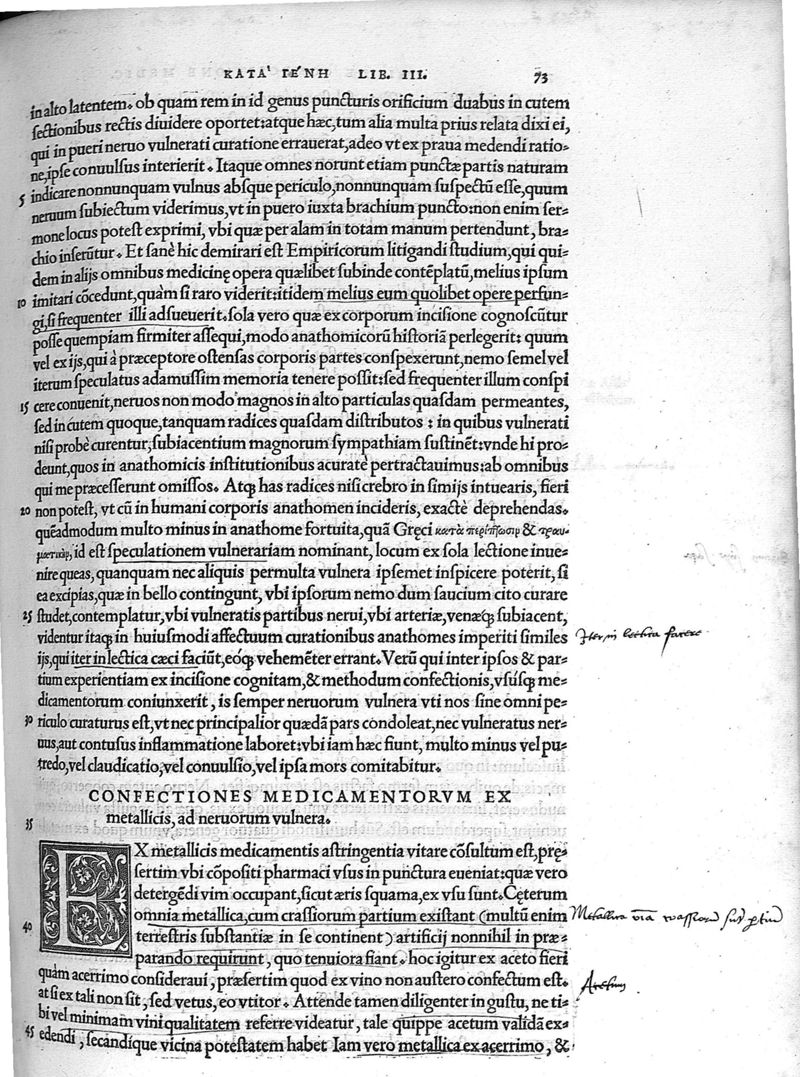 ΚΑΤΑ' ΓΕ'ΝΗ LIB. III. 73
in alto latentem. ob quam rem in id genus puncturis orificium duabus in cutem
sectionibus rectis diuidere oportet: atque hæc, tum alia multa prius relata dixi ei,
qui in pueri neruo vulnerati curatione errauerat, adeo vt ex praua medendi ratio-
ne, ipse conuulsus interierit. Itaque omnes norunt etiam punctæ partis naturam
5 indicare nonnunquam vulnus absque periculo, nonnunquam suspectū esse, quum
neruum subiectum viderimus, vt in puero iuxta brachium puncto: non enim ser-
mone locus potest exprimi, vbi quæ per alam in totam manum pertendunt, bra-
chio inserūtur. Et sanè hic demirari est Empiricorum litigandi studium, qui qui-
dem in alijs omnibus medicinę opera quælibet subinde contēplatū, melius ipsum
10 imitari cōcedunt, quàm si raro viderit: itidem melius eum quolibet opere perfun-
gi, si frequenter illi adsueuerit. sola vero quæ ex corporum incisione cognoscūtur
posse quempiam firmiter assequi, modo anathomicorū historiā perlegerit: quum
vel ex ijs, qui à præceptore ostensas corporis partes conspexerunt, nemo semel vel
iterum speculatus adamussim memoria tenere possit: sed frequenter illum conspi
15 cere conuenit, neruos non modo magnos in alto particulas quasdam permeantes,
sed in cutem quoque, tanquam radices quasdam distributos: in quibus vulnerati
nisi probè curentur, subiacentium magnorum sympathiam sustinēt: vnde hi pro-
deunt, quos in anathomicis institutionibus acuratè pertractauimus: ab omnibus
qui me præcesserunt omissos. Atq; has radices nisi crebro in simijs intuearis, fieri
20 non potest, vt cū in humani corporis anathomen incideris, exactè deprehendas.
quēadmodum multo minus in anathome fortuita, quā Gręci κατὰ περίπτωσιν & τραυ-
ματικὴν, id est speculationem vulnerariam nominant, locum ex sola lectione inue-
nire queas, quanquam nec aliquis permulta vulnera ipsemet inspicere poterit, si
ea excipias, quæ in bello contingunt, vbi ipsorum nemo dum saucium cito curare
25 studet, contemplatur, vbi vulneratis partibus nerui, vbi arteriæ, venæq; subiacent,
videntur itaq; in huiusmodi affectuum curationibus anathomes imperiti similes Iter in lectica facere
ijs, qui iter in lectica cæci faciūt, eóq; vehemēter errant. Verū qui inter ipsos & par-
tium experientiam ex incisione cognitam, & methodum confectionis, vsúsq; me-
dicamentorum coniunxerit, is semper neruorum vulnera vti nos sine omni pe-
30 riculo curaturus est, vt nec principalior quædā pars condoleat, nec vulneratus ner-
uus, aut contusus inflammatione laboret: vbi iam hæc fiunt, multo minus vel pu-
tredo, vel claudicatio, vel conuulsio, vel ipsa mors comitabitur.
CONFECTIONES MEDICAMENTORVM EX
35 metallicis, ad neruorum vulnera.
EX metallicis medicamentis astringentia vitare cōsultum est, pręsertim
sertim vbi cōpositi pharmaci vsus in punctura eueniat: quæ vero
detergēdi vim occupant, sicut æris squama, ex vsu sunt. Cęterum
omnia metallica, cum crassiorum partium existant (multū enim Metallica
40 terrestris substantiæ in se continent) artificij nonnihil in præ-
parando requirunt, quo tenuiora fiant. hoc igitur ex aceto fieri
quàm acerrimo consideraui, præsertim quod ex vino non austero confectum est. Acetum
at si ex tali non sit, sed vetus, eo vtitor. Attende tamen diligenter in gustu, ne ti-
bi vel minimam vini qualitatem referre videatur, tale quippe acetum validā ex-
45 edendi, secandique vicina potestatem habet Iam vero metallica ex acerrimo, &